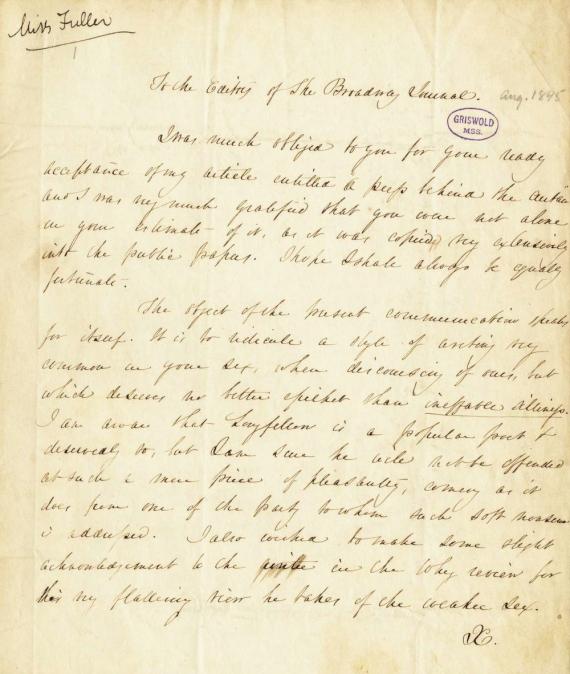 Miss Fuller
1
To the Editors of The Broadway Journal.
Aug. 1845
GRISWOLD
MSS.
I was much obliged to you for your ready
acceptance of my article entitled A peep behind the curtain
and I was very much gratified that you were not alone
in your estimate of it, as it was copied very extensively
into the public papers. I hope I shall always be equally
fortunate.
The object of the present communication speaks
for itself. It is to ridicule a style of writing very
common in your sex, when discoursing of ours, but
which deserves no better epithet than ineffable silliness.
I am aware that Longfellow is a popular poet &
deservedly so, but I am sure he will not be offended
at such a mere piece of pleasantry, coming as it
does from one of the party to whom such soft nonsense
is addressed. I also wished to make some slight
acknowledgement to the in the Whig review for
his very flattering view he takes of the weaker sex.
X.